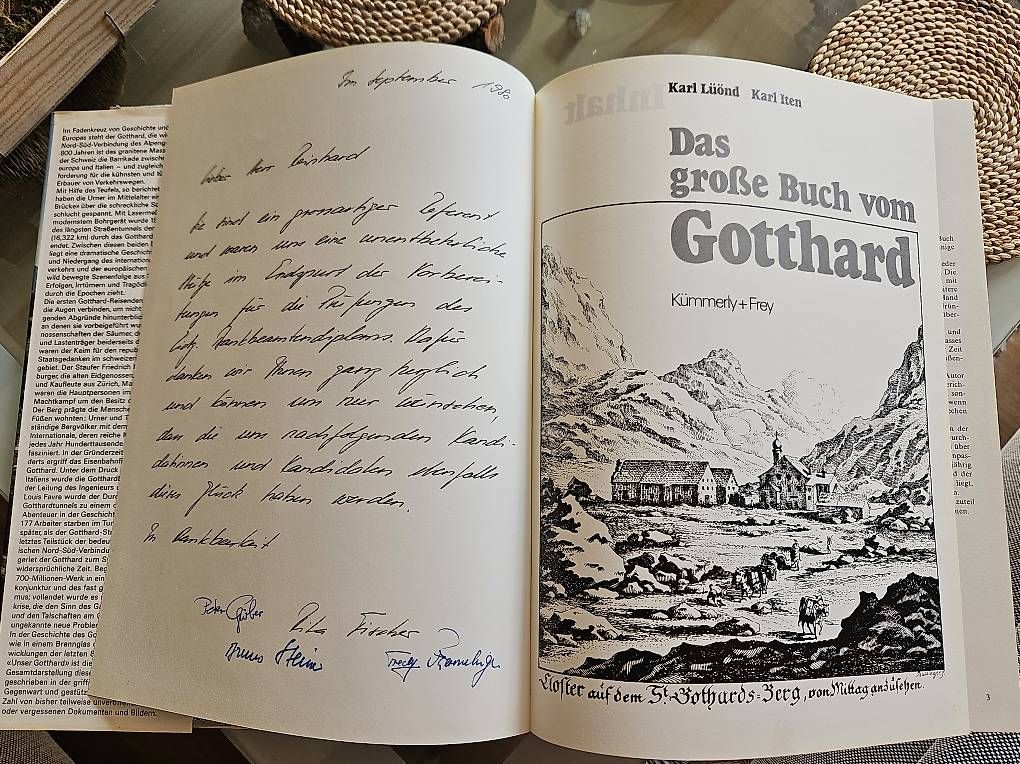 Im Fadenkreuz von Geschichte und
Europas steht der Gotthard, die wi
Nord-Süd-Verbindung des Alpeng
800 Jahren ist das granitene Mass
der Schweiz die Barrikade zwische
europa und Italien – und zugleich
forderung für die kühnsten und tü
Erbauer von Verkehrswegen.
Mit Hilfe des Teufels, so berichtet
haben die Urner im Mittelalter ein
Brücke» über die schreckliche S
schlucht gespannt. Mit Lasermeß
modernstem Bohrgerät wurde 19
des längsten Straßentunnels der
(16,322 km) durch das Gotthard
endet. Zwischen diesen beiden
liegt eine dramatische Geschicht
und Niedergang des internation
verkehrs und der europäischen
wild bewegte Szenenfolge aus
Erfolgen, Irrtümern und Tragödi
durch die Epochen zieht.
Die ersten Gotthard-Reisenden
die Augen verbinden, um nicht
genden Abgründe hinunterblic
an denen sie vorbeigeführt wu
nossenschaften der Säumer, d
und Lastenträger beiderseits d
waren der Keim für den repub
Staatsgedanken im schweizer
gebiet. Der Staufer Friedrich
burger, die alten Eidgenossen
und Kaufleute aus Zürich, Ma
waren die Hauptpersonen im
Machtkampf um den Besitz
Der Berg prägte die Mensche
Füßen wohnten: Urner und T
ständige Bergvölker mit dem
Internationale, deren reiche K
jedes Jahr Hunderttausende
fasziniert. In der Gründerzeit
derts ergriff das Eisenbahnfi
Gotthard. Unter dem Druck
Italiens wurde die Gotthardb
der Leitung des Ingenieurs
Louis Favre wurde der Durc
Gotthardtunnels zu einem
Abenteuer in der Geschicht
177 Arbeiter starben im Tun
später, als der Gotthard-Str
letztes Teilstück der bedeut
ischen Nord-Süd-Verbindu
geriet der Gotthard zum Sy
widersprüchliche Zeit. Beg
700-Millionen-Werk in ein
konjunktur und des fast g
mus; vollendet wurde es
krise, die den Sinn des Ga
und den Talschaften am G
ungekannte neue Problem
In der Geschichte des Go
wie in einem Brennglas d
wicklungen der letzten S
«Unser Gotthard» ist die
Gesamtdarstellung diese
geschrieben in der griffi
Gegenwart und gestütz
Zahl von bisher teilweise unveröffen
oder vergessenen Dokumenten und Bildern.
Im September 1980
Lieber Herr Reinhard
Sie sind ein grossartiger Referent
und waren uns eine unentbehrliche
Hilfe im Endspurt der Vorberei-
tungen für die Prüfungen des
Eidg. Bankbeamtendiploms. Dafür
danken wir Ihnen ganz herzlich
und können uns nur wünschen,
dass die uns nachfolgenden Kandi-
datinnen und Kandidaten ebenfalls
dieses Glück haben werden.
In Dankbarkeit
Peter
Rita Fischer
Karl Lüönd Karl Iten
Das
große Buch vom
Gotthard
Kümmerly+Frey
Closter auf dem St. Gothards=Berg, von Mittag anzusehen.
3